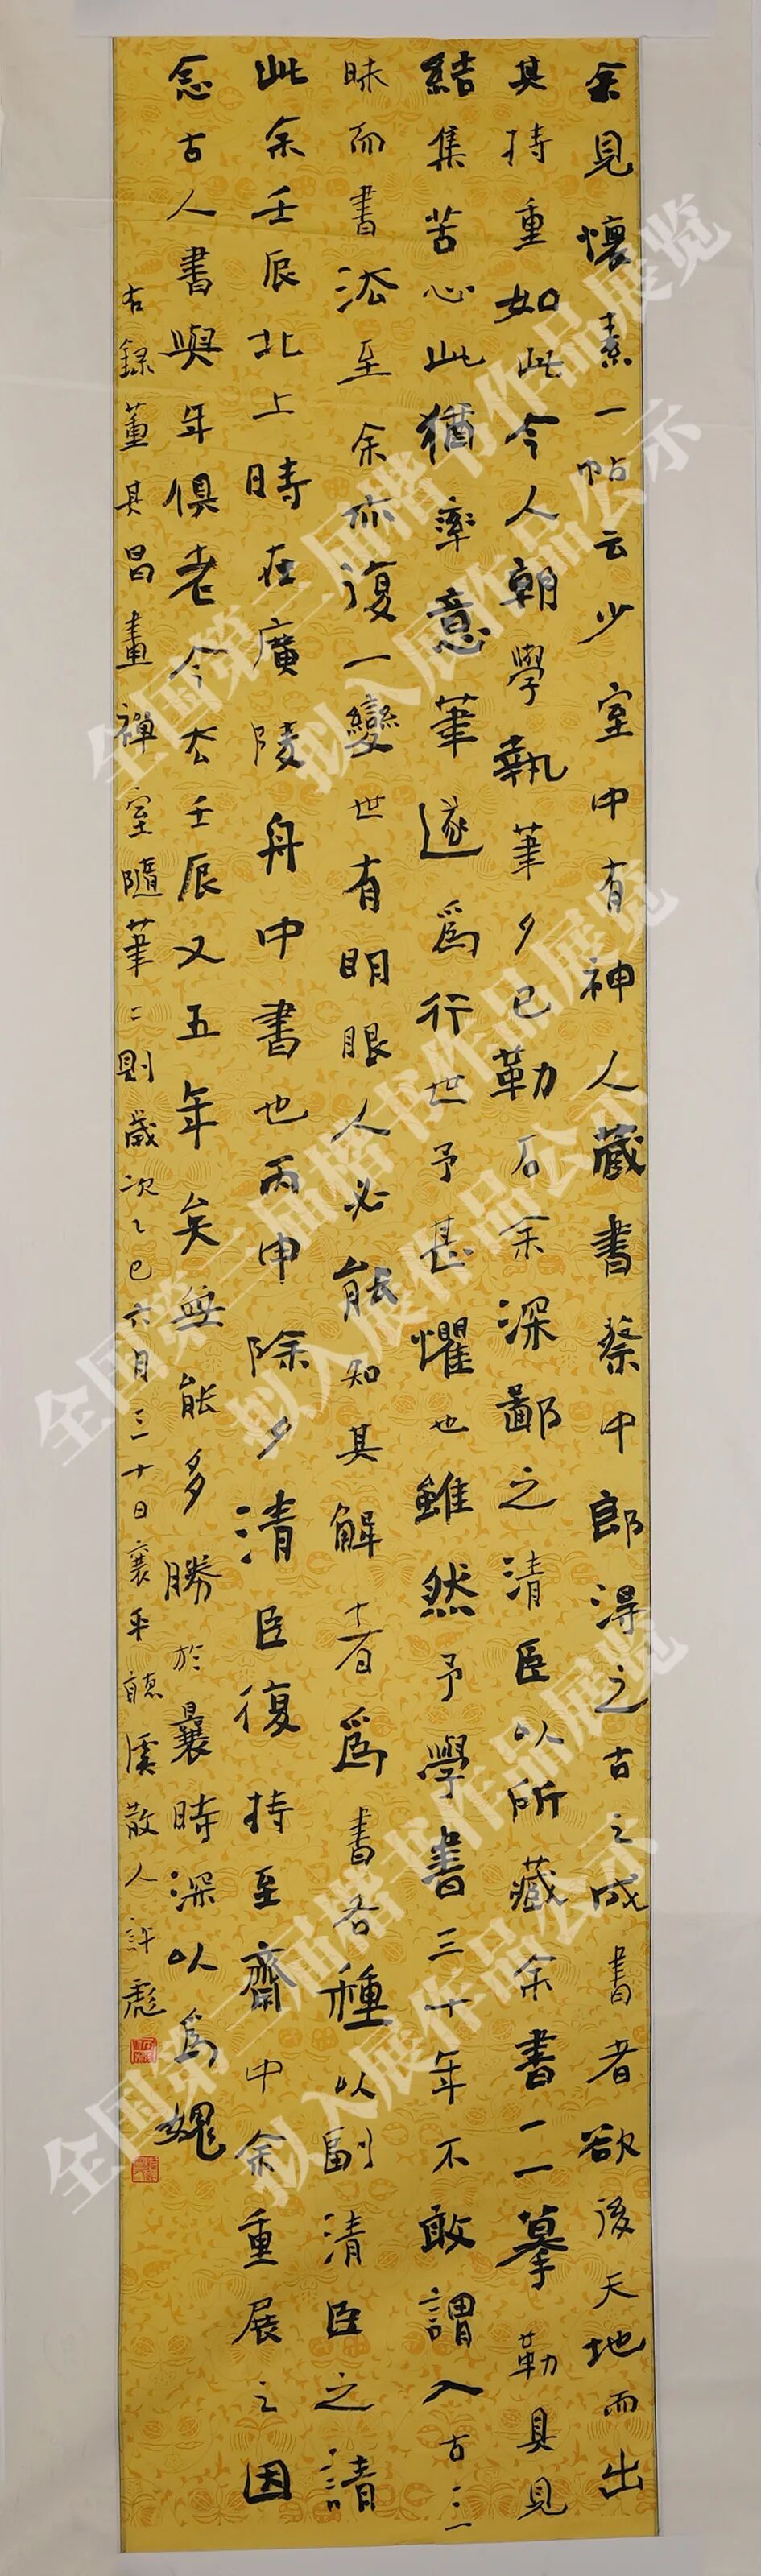 余見懷素一帖云少室中有神人藏書蔡中郎得之古之成書者欲後天地而出
其持重如此今人朝學執筆夕已勒石余深鄙之清臣以所藏余書一一摹勒具見
結集苦心此猶率意筆遂爲行世予甚懼也雖然予學書三十年不敢謂入古三
昧而書法至余亦復一變世有明眼人必能知其解者爲書各種以副清臣之請
此余壬辰北上時在廣陵舟中書也丙申除夕清臣復持至齋中余重展之因
念古人書與年俱老今去壬辰又五年矣無能多勝於曩時深以爲媿
右錄董其昌畫禪室隨筆二則歲次乙巳六月三十日襄平聽溪散人許彪
全国第三届楷书作品展览
拟入展作品公示
全国第三届楷书作品展览
拟入展作品公示
全国第三届楷书作品展览
拟入展作品公示